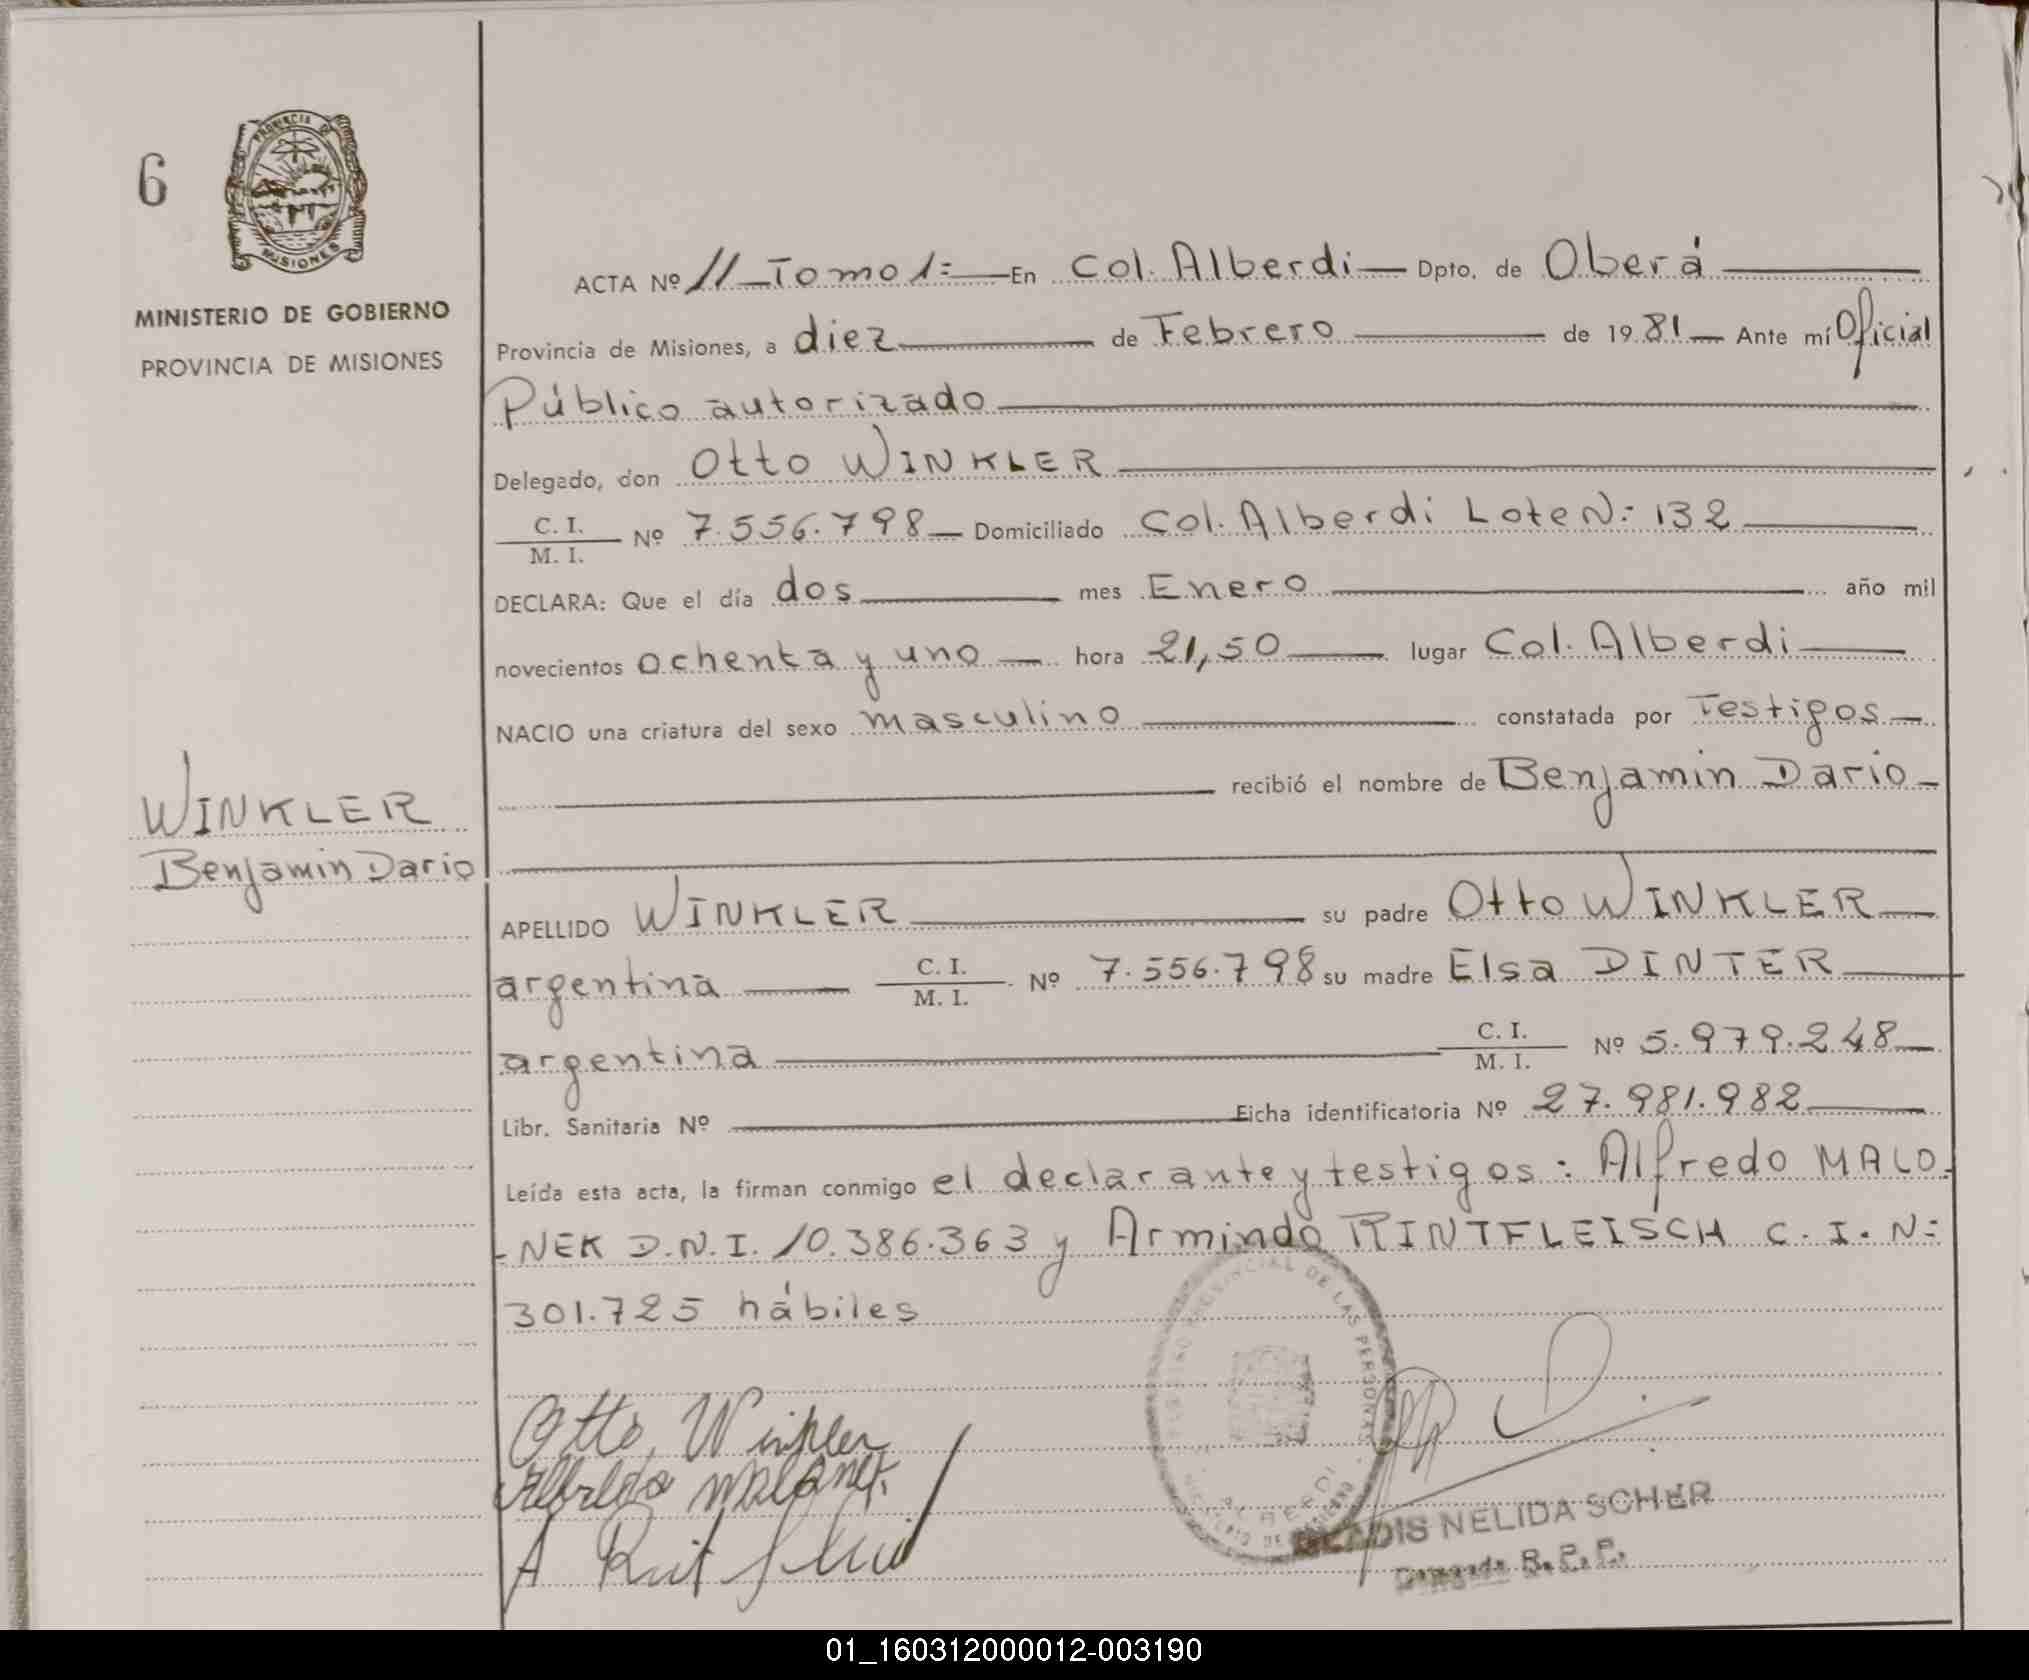 6
PROVINCIA DE
MISIONES
MINISTERIO DE GOBIERNO
PROVINCIA DE MISIONES
WINKLER
Benjamin Dario
ACTA Nº 11 - Tomo 1: En Col. Alberdi Dpto. de Oberá
Provincia de Misiones, a diez de Febrero de 1981 Ante mí Oficial
Público autorizado
Delegado, don Otto WINKLER
C. I.
M. I. Nº 7.556.798 Domiciliado Col. Alberdi Lote N: 132
DECLARA: Que el día dos mes Enero año mil
novecientos ochenta y uno hora 21,50 lugar Col. Alberdi
NACIO una criatura del sexo masculino constatada por Testigos
recibió el nombre de Benjamin Dario
APELLIDO WINKLER su padre Otto WINKLER
argentina C. I. M. I. Nº 7.556.798 su madre Elsa DINTER
argentina C. I. M. I. Nº 5.979.248
Libr. Sanitaria Nº Ficha identificatoria Nº 27.981.982
Leída esta acta, la firman conmigo el declarante y testigos: Alfredo MALO-
-NEK D.N.I. 10.386.363 y Armindo RINTFLEISCH C. I. N:
301.725 hábiles
PROVINCIAL DE LAS PERSONAS
ALBERDI
Otto Winkler
Alfredo Malonek
GLADIS NELIDA SCHER
R. P. P.
01_160312000012-003190